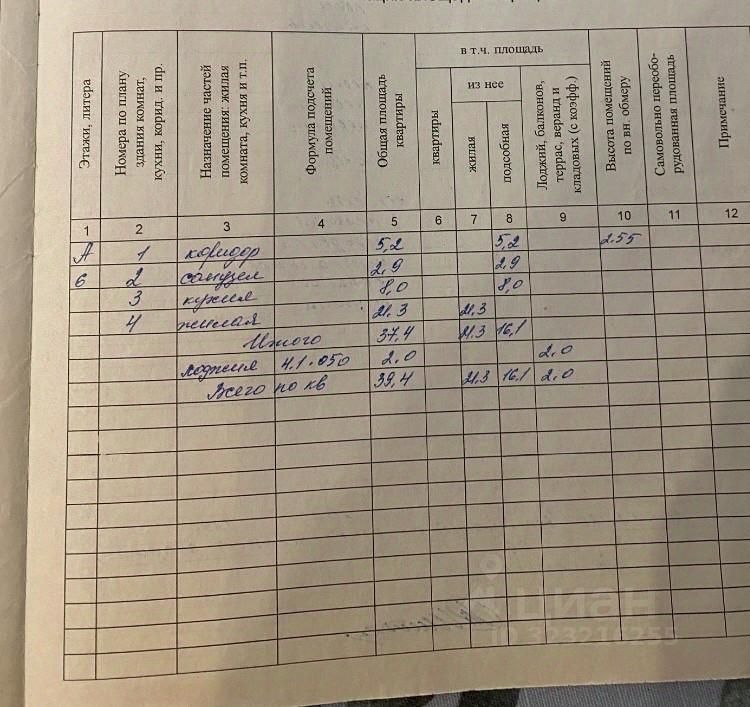 Этажи, литера
Номера по плану здания комнат, кухни, корид. и пр.
Назначение частей помещения: жилая комната, кухня и т.п.
Формула подсчета помещений
Общая площадь квартиры
в т.ч. площадь
квартиры
из нее
жилая
подсобная
Лоджий, балконов, террас, веранд и кладовых (с коэфф.)
Высота помещений по вн. обмеру
Самовольно переобо- рудованная площадь
Примечание
1 2 3 4 5 6 7 8 9 10 11 12
А 1 коридор 5,2 5,2 2.55
6 2 санузел 2,9 2,9
3 кухня 8,0 8,0
4 жилая 21.3 21.3
Итого 37,4 21.3 16,1
лоджия 4.1·050 2.0 2.0
Всего по кв 39,4 21.3 16,1 2.0
циан
ID 323216255